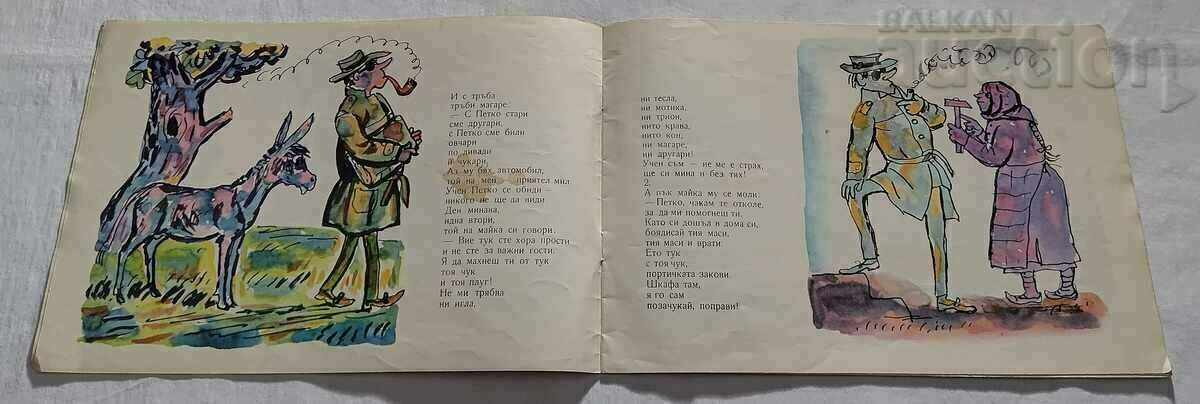 BALKAN
auction
И с тръба
тръби магаре:
— С Петко стари
сме другари,
с Петко сме били
овчари
по ливади
и чукари,
Аз му бях автомобил,
той на мен — приятел мил
Учен Петко се обиди —
никого не ще да види
Ден минава,
идва втори,
той на майка си говори:
— Вие тук сте хора прости
и не сте за важни гости.
Я да махнеш ти от тук
тоя чук
и тоя плуг!
Не ми трябва
ни игла,
ни тесла,
ни мотика,
ни трион,
нито крава,
нито кон,
ни магаре,
ни другари!
Учен съм — не ме е страх,
ще си мина и без тях!
2.
А пък майка му се моли:
—Петко, чакам те отколе,
за да ми помогнеш ти.
Като си дошъл в дома си,
боядисай тия маси,
тия маси и врати.
Ето тук
с тоя чук,
портичката закови.
Шкафа там,
я го сам
позачукай, поправи!